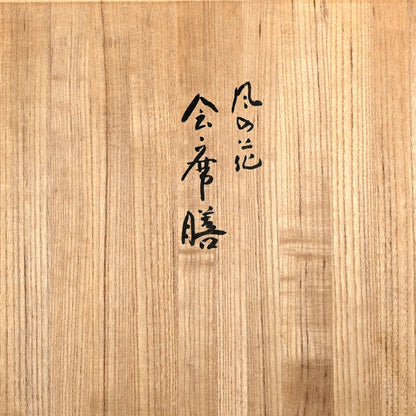 風の花
会席膳